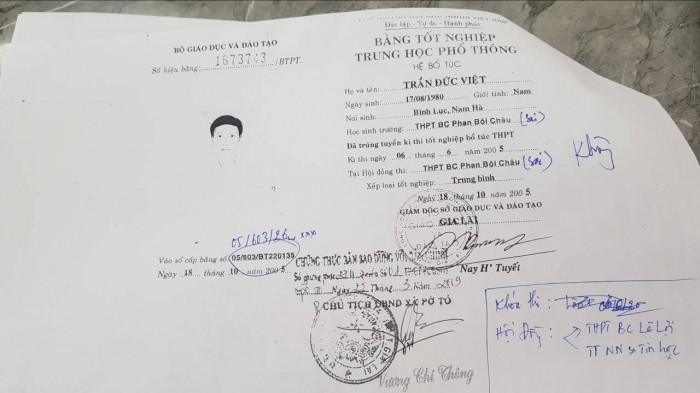 Độc lập - Tự do - Hạnh phúc
BỘ GIÁO DỤC VÀ ĐÀO TẠO
Số hiệu bằng: 1673743 /BTPT.
BẰNG TỐT NGHIỆP
TRUNG HỌC PHỔ THÔNG
HỆ BỔ TÚC
Họ và tên: TRẦN ĐỨC VIỆT
Ngày sinh: 17/08/1980 Giới tính: Nam
Nơi sinh: Bình Lục, Nam Hà
Học sinh trường: THPT BC Phan Bội Châu (sai)
Đã trúng tuyển kì thi tốt nghiệp bổ túc THPT
Kì thi ngày 06 tháng 6 năm 2005
Tại Hội đồng thi: THPT BC Phan Bội Châu (sai)
Không
Xếp loại tốt nghiệp: Trung bình
Ngày 18 tháng 10 năm 2005
GIÁM ĐỐC SỞ GIÁO DỤC VÀ ĐÀO TẠO
GIA LAI
Nay H' Tuyết
05/603/
Vào sổ cấp bằng số 05/603/BT220135
Ngày 18 tháng 10 năm 2005
CHỨNG THỰC BẢN SAO ĐÚNG VỚI
Ngày 22 Tháng 3 năm 2019
CHỦ TỊCH UBND XÃ PỜ TÓ
Vương Chí Thông
Khóa thi:
Hội đồng: THPT BC Lê Lợi
TT NN & Tin học